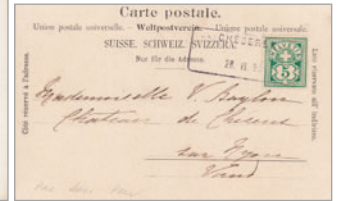 Carte postale.
Union postale universelle. — Weltpostverein. — Unione postale universale.
SUISSE. SCHWEIZ. SVIZZERA.
Nur für die Adresse.
Côté réservé à l'adresse.
Lato riservato all' indirizzo.
5
Mademoiselle V. Baylon
Château de
sur Nyon
Vaud